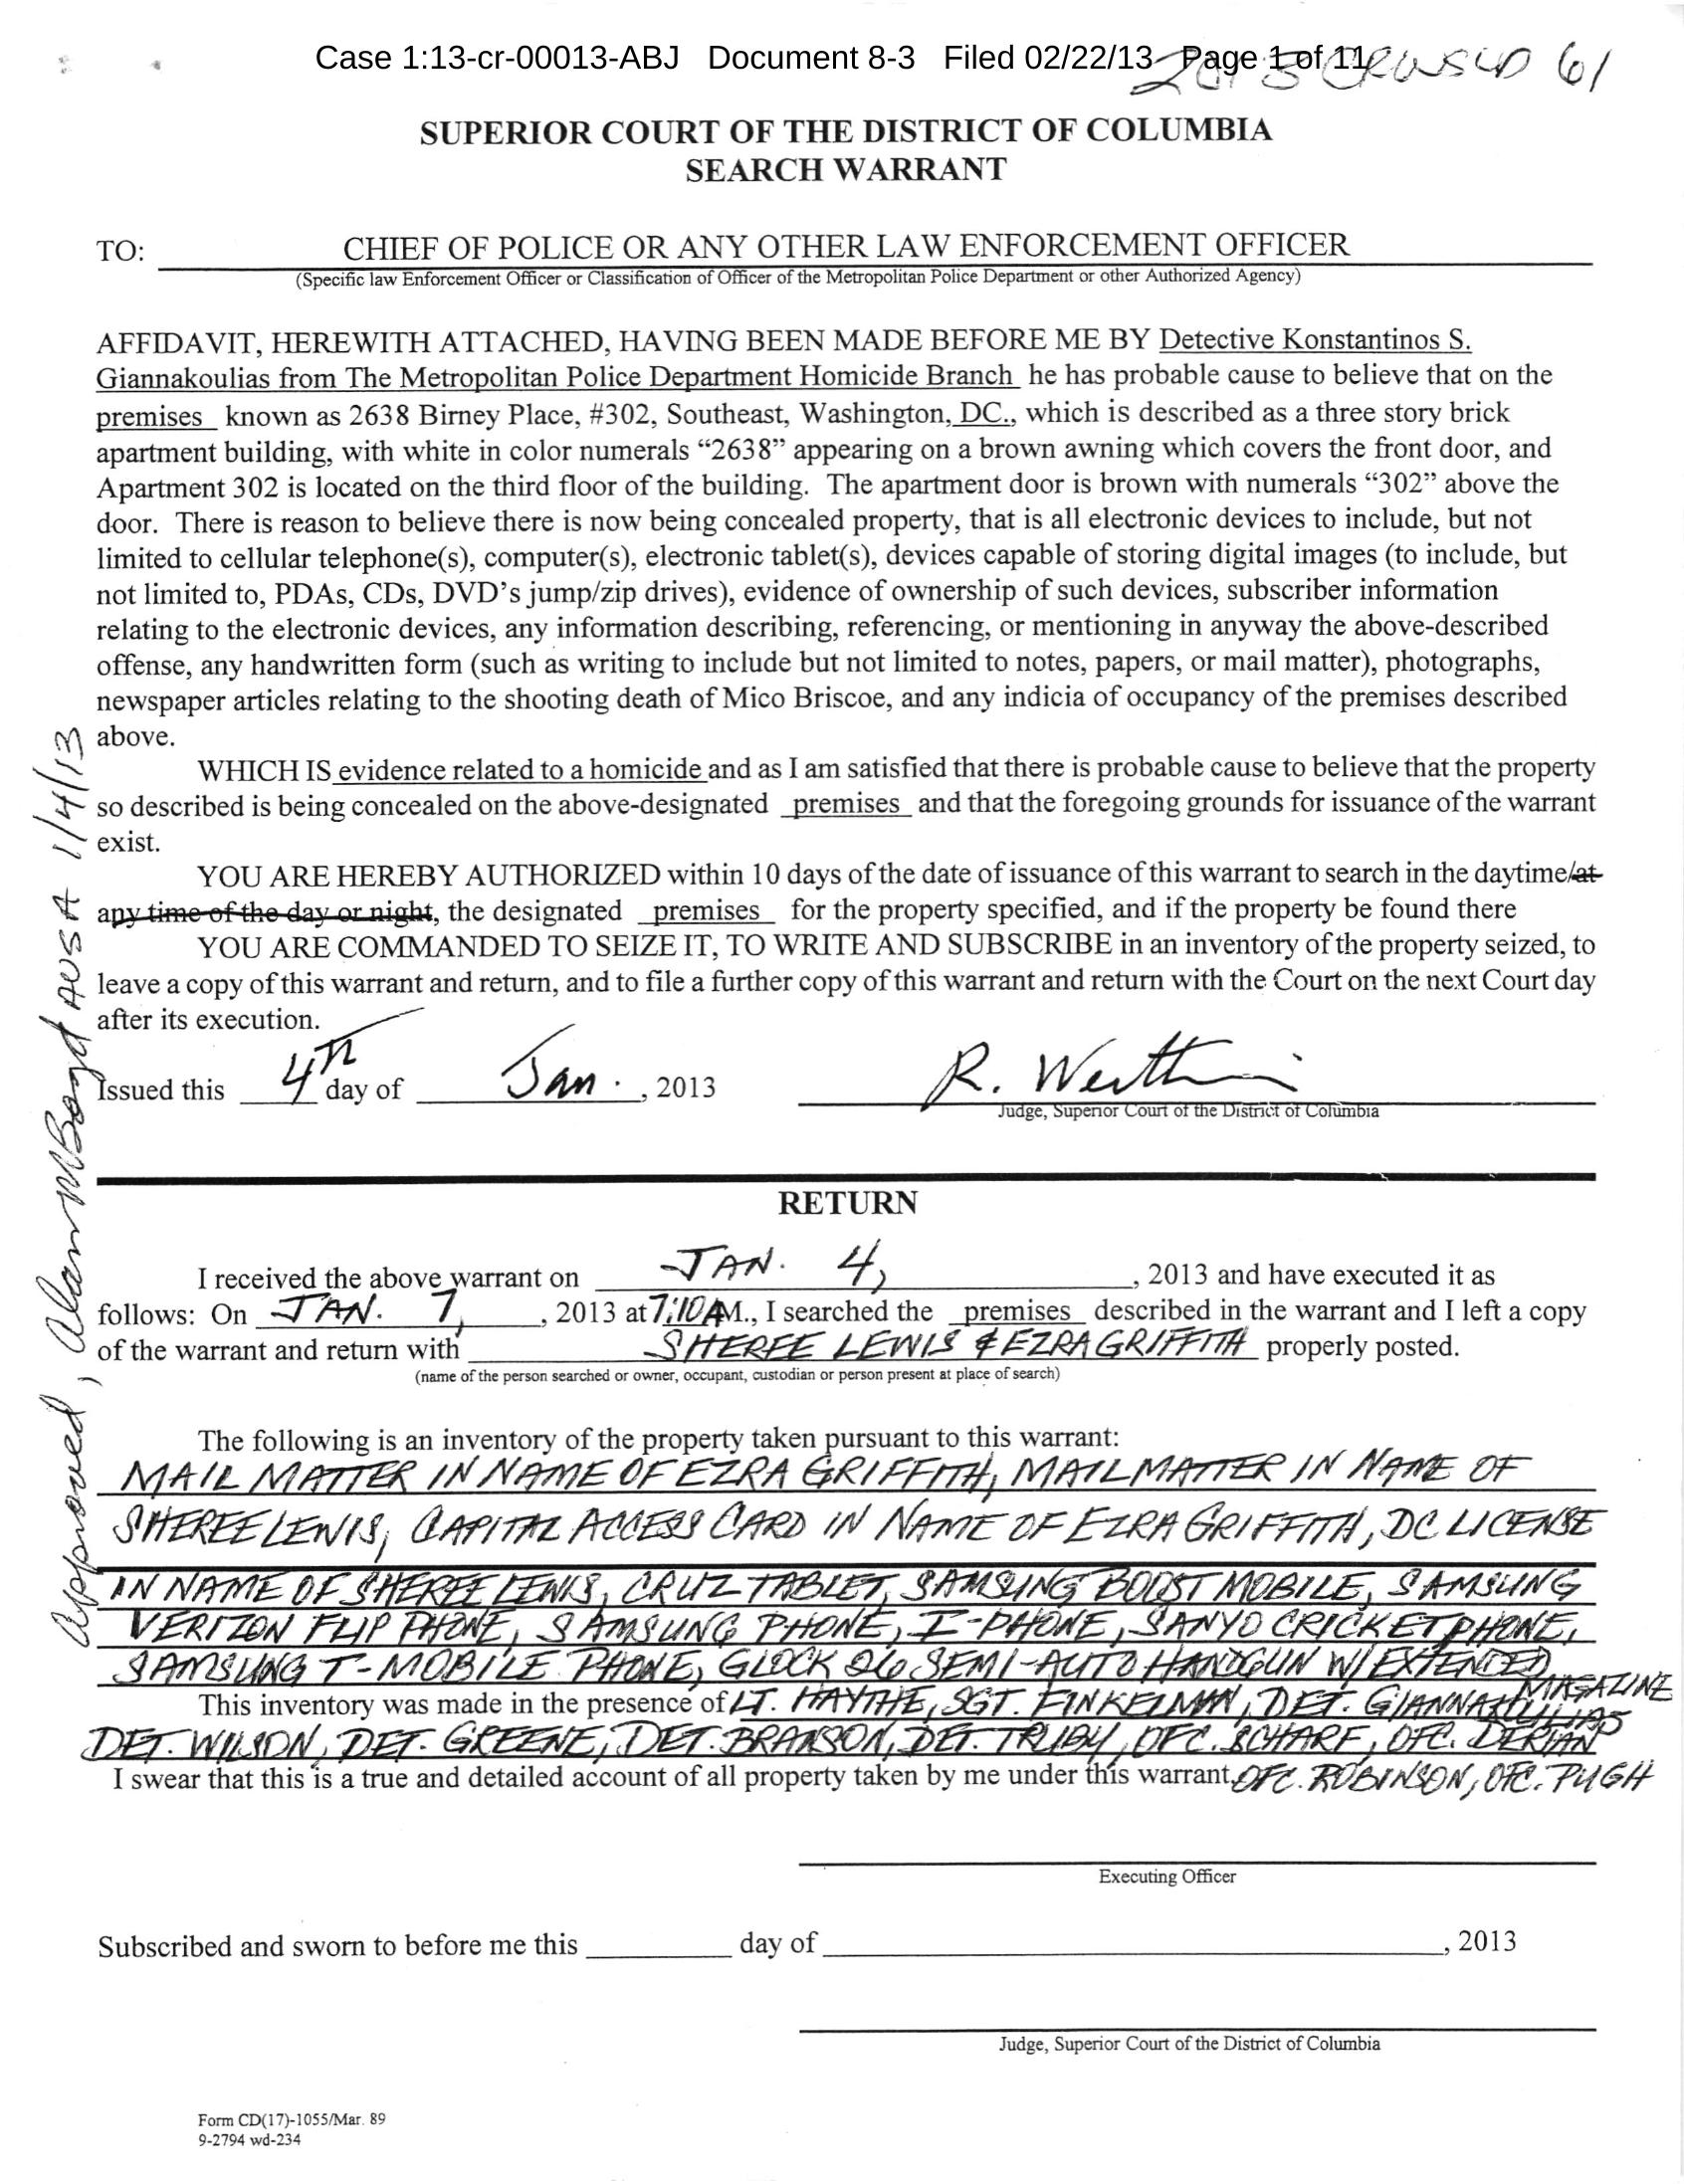 Case 1:13-cr-00013-ABJ Document 8-3 Filed 02/22/13 Page 1 of 11
2013 CRWSLD 61
SUPERIOR COURT OF THE DISTRICT OF COLUMBIA
SEARCH WARRANT
TO: CHIEF OF POLICE OR ANY OTHER LAW ENFORCEMENT OFFICER
(Specific law Enforcement Officer or Classification of Officer of the Metropolitan Police Department or other Authorized Agency)
AFFIDAVIT, HEREWITH ATTACHED, HAVING BEEN MADE BEFORE ME BY Detective Konstantinos S.
Giannakoulias from The Metropolitan Police Department Homicide Branch he has probable cause to believe that on the
premises known as 2638 Birney Place, #302, Southeast, Washington, DC., which is described as a three story brick
apartment building, with white in color numerals “2638” appearing on a brown awning which covers the front door, and
Apartment 302 is located on the third floor of the building. The apartment door is brown with numerals “302” above the
door. There is reason to believe there is now being concealed property, that is all electronic devices to include, but not
limited to cellular telephone(s), computer(s), electronic tablet(s), devices capable of storing digital images (to include, but
not limited to, PDAs, CDs, DVD’s jump/zip drives), evidence of ownership of such devices, subscriber information
relating to the electronic devices, any information describing, referencing, or mentioning in anyway the above-described
offense, any handwritten form (such as writing to include but not limited to notes, papers, or mail matter), photographs,
newspaper articles relating to the shooting death of Mico Briscoe, and any indicia of occupancy of the premises described
above.
WHICH IS evidence related to a homicide and as I am satisfied that there is probable cause to believe that the property
so described is being concealed on the above-designated premises and that the foregoing grounds for issuance of the warrant
exist.
YOU ARE HEREBY AUTHORIZED within 10 days of the date of issuance of this warrant to search in the daytime/at
any time of the day or night, the designated premises for the property specified, and if the property be found there
YOU ARE COMMANDED TO SEIZE IT, TO WRITE AND SUBSCRIBE in an inventory of the property seized, to
leave a copy of this warrant and return, and to file a further copy of this warrant and return with the Court on the next Court day
after its execution.
Issued this 4th day of Jan. , 2013 R. Werth
Judge, Superior Court of the District of Columbia
Approved, Alan M Boyd AUSA 1/4/13
RETURN
I received the above warrant on JAN. 4, , 2013 and have executed it as
follows: On JAN. 7, , 2013 at 7:10 AM., I searched the premises described in the warrant and I left a copy
of the warrant and return with SHEREE LEWIS & EZRA GRIFFITH properly posted.
(name of the person searched or owner, occupant, custodian or person present at place of search)
The following is an inventory of the property taken pursuant to this warrant:
MAIL MATTER IN NAME OF EZRA GRIFFITH, MAIL MATTER IN NAME OF
SHEREE LEWIS, CAPITAL ACCESS CARD IN NAME OF EZRA GRIFFITH, DC LICENSE
IN NAME OF SHEREE LEWIS, CRUZ TABLET, SAMSUNG BOOST MOBILE, SAMSUNG
VERIZON FLIP PHONE, SAMSUNG PHONE, I-PHONE, SANYO CRICKET PHONE,
SAMSUNG T-MOBILE PHONE, GLOCK 26 SEMI-AUTO HANDGUN W/EXTENDED
MAGAZINE
This inventory was made in the presence of LT. HAYTHE, SGT. FINKELMAN, DET. GIANNAKOULIAS
DET. WILSON, DET. GREENE, DET. BRANSON, DET. TRUBY, OFC. SCHARF, OFC. DERIAN
I swear that this is a true and detailed account of all property taken by me under this warrant. OFC. ROBINSON, OFC. PUGH
Executing Officer
Subscribed and sworn to before me this day of , 2013
Judge, Superior Court of the District of Columbia
Form CD(17)-1055/Mar. 89
9-2794 wd-234